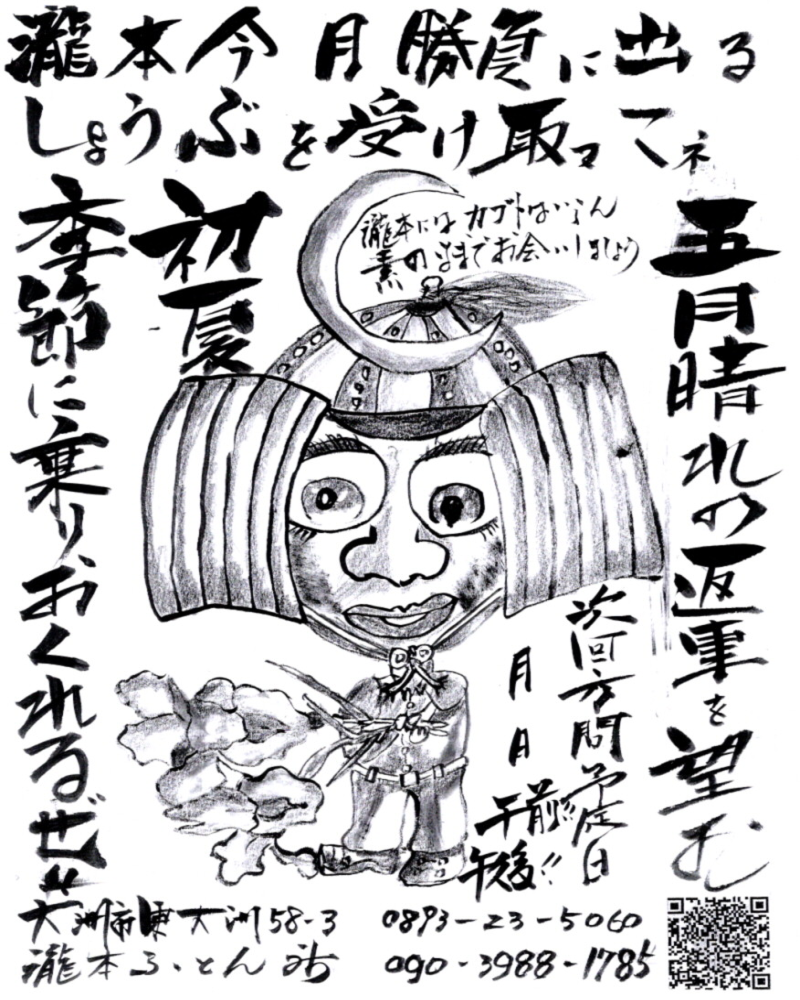 瀧本今月勝負に出る
しょうぶを受け取ってネ
五月晴れの返事を望む
瀧本にはカブトはいらん
素のままでお会いしましょう
初夏
季節に乗り、おくれるぜ!!
次回方問予定日
月 日 午前!!
午後!!
大洲市東大洲58-3 0893-23-5060
瀧本ふとん
090-3988-1785